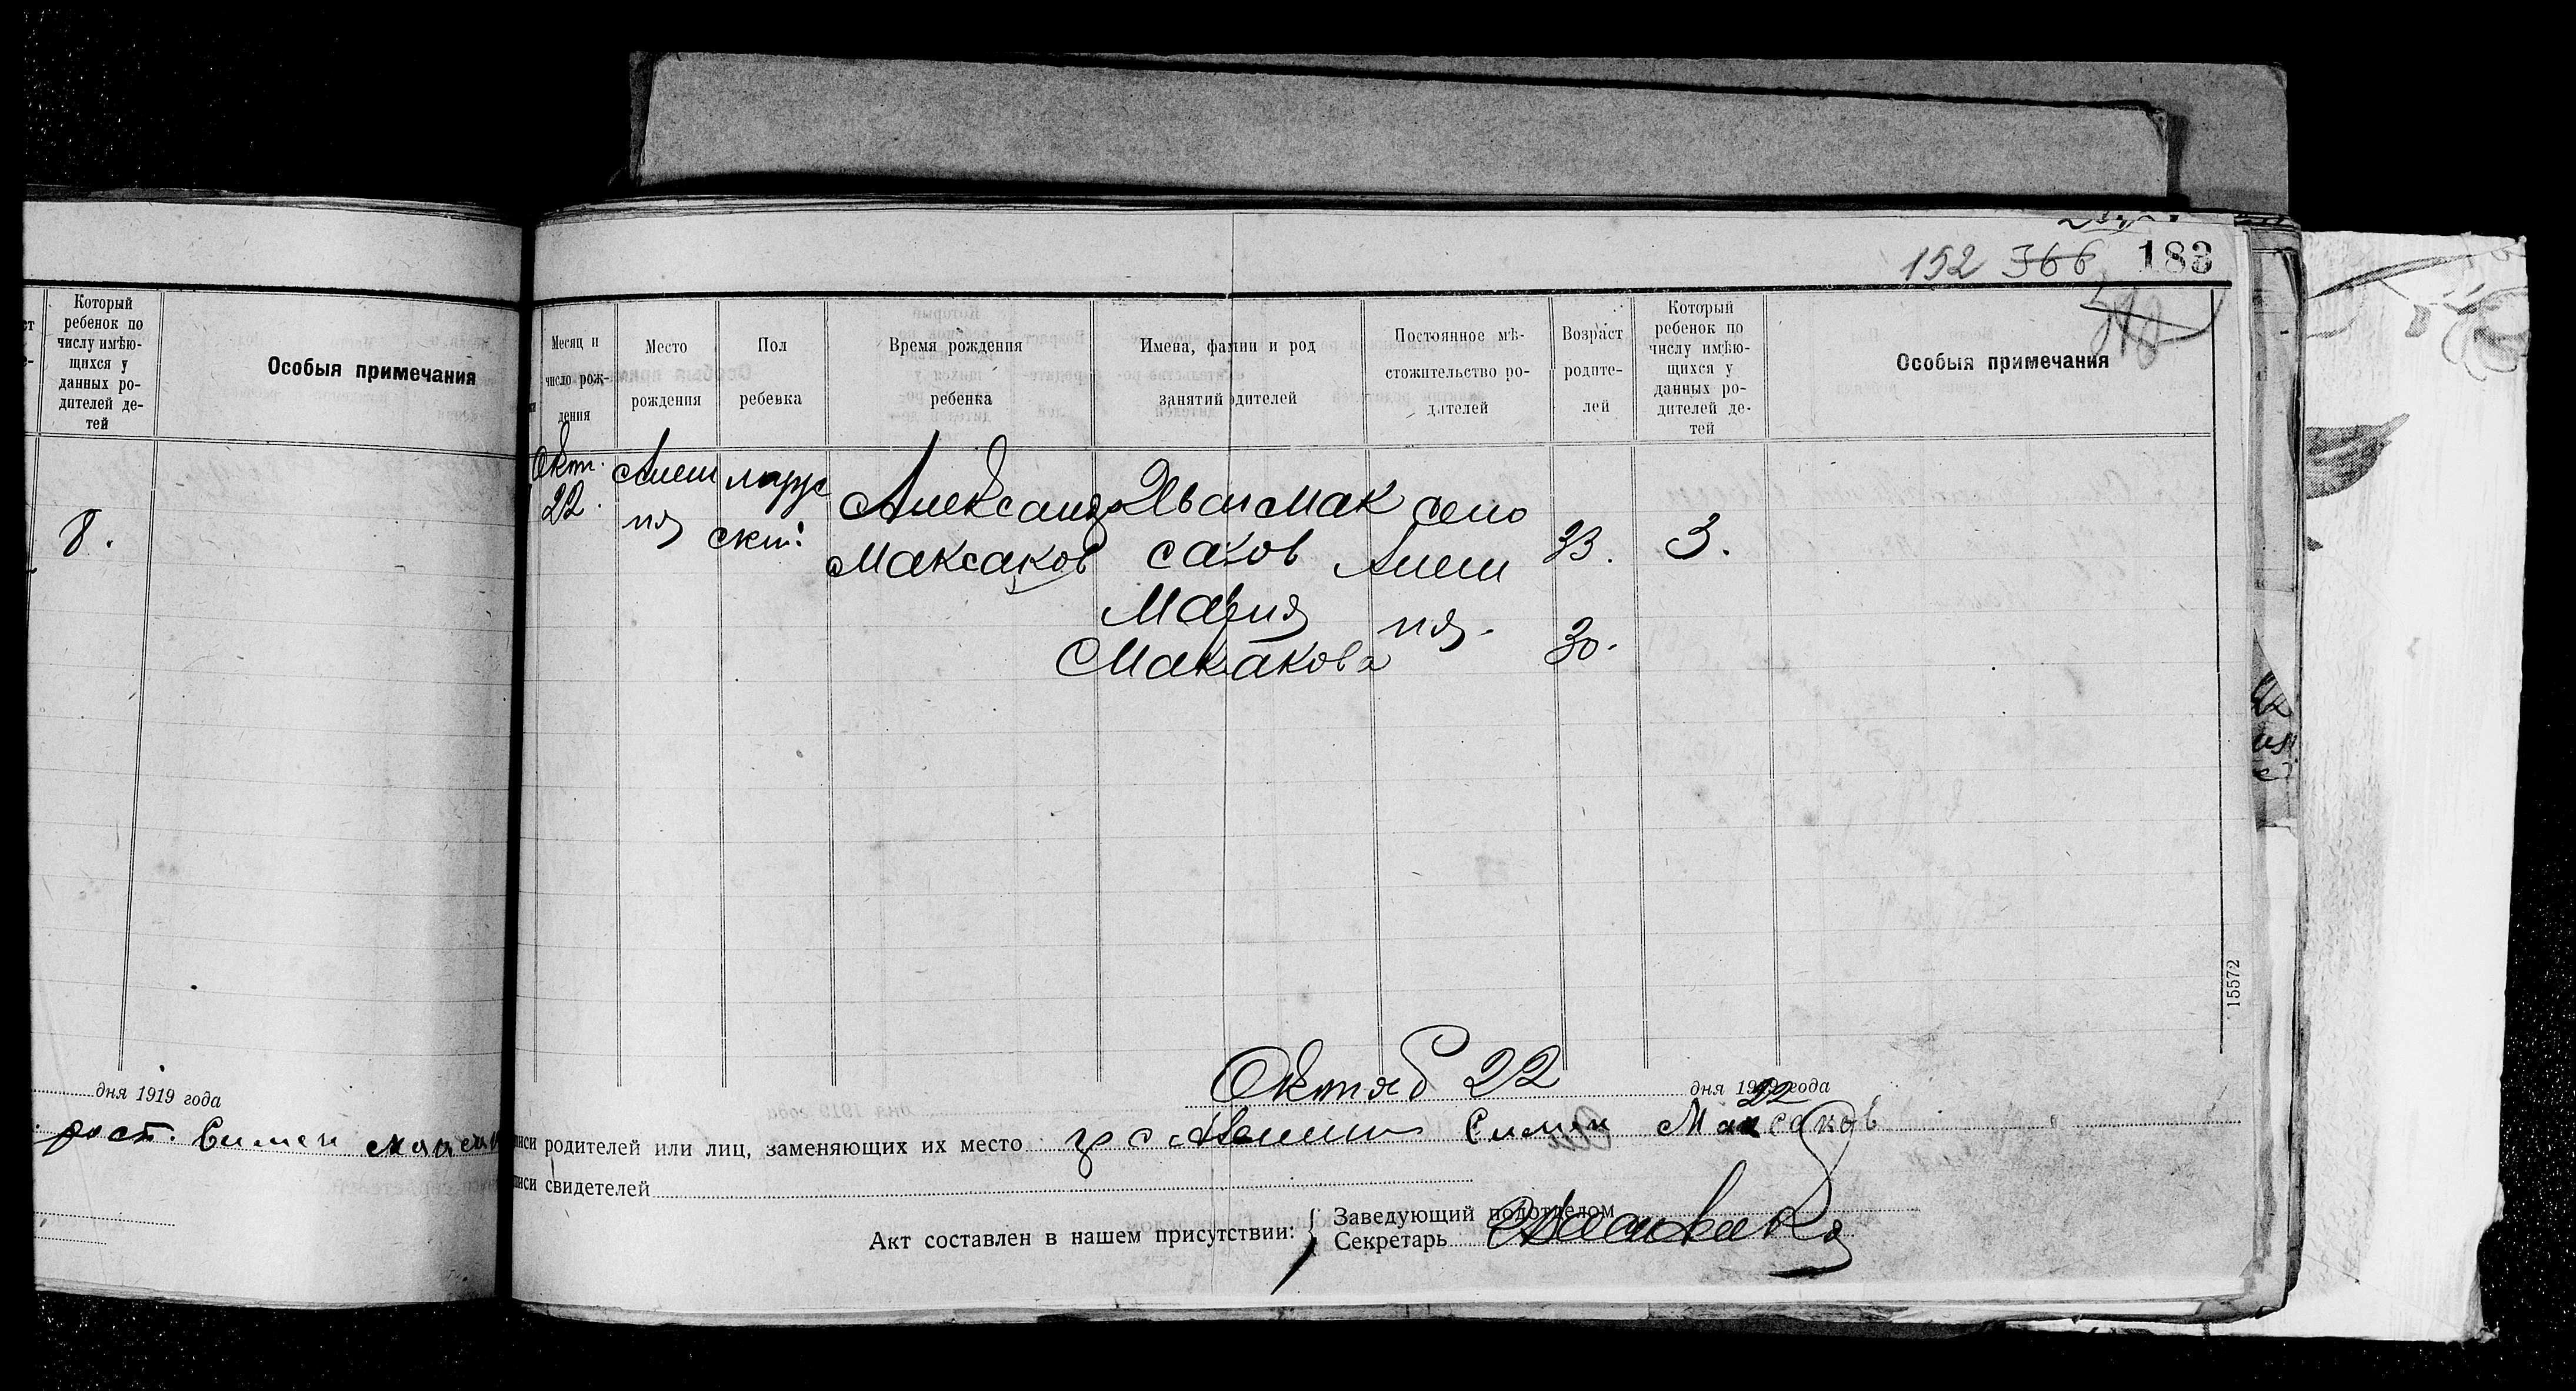 152 366 183
Который
ребенок по
числу имѣю-
щихся у
данных ро-
дителей де-
тей
Особыя примечания
8.
дня 1919 года
рост. Симен
Месяц и
число рож-
дения
Место
рождения
Пол
ребенка
Время рождения
ребенка
Имена, фамилии и род
занятий родителей
Постоянное мѣ-
стожительство ро-
дителей
Возраст
родите-
лей
Который
ребенок по
числу имѣю-
щихся у
данных ро-
дителей де-
тей
Особыя примечания
Окт.
22.
Алеш
ня
мужс
ский
Александр
Максаков
Иван Мак
саков
Мария
Макакова
село
Алеш
ня.
33.
30.
3.
15572
Октяб 22 дня 1919 года
22
писи родителей или лиц, заменяющих их место Симен Максаков
писи свидетелей
Акт составлен в нашем присутствии:
Заведующий подотделом
Секретарь